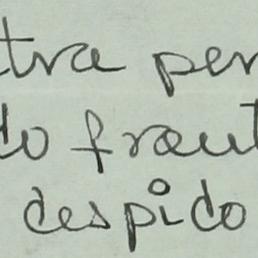 tra per
do fraut
despido